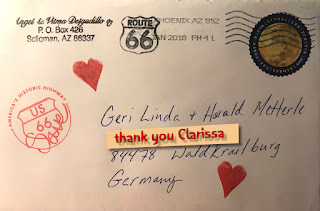 Angel & Vilma Delgadillo
P. O. Box 426
Seligman, AZ 86337
ROUTE
66
PHOENIX AZ 852
JAN 2018 PM 4 L
AMERICA'S HISTORIC HIGHWAY
US
66
Geri Linda + Harald Metterle
thank you Clarissa
84478 Waldkraiburg
Germany